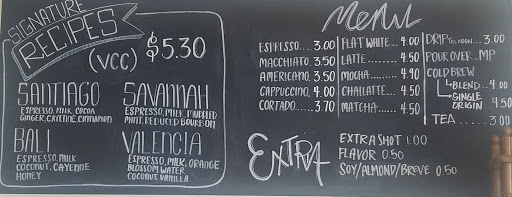 SIGNATURE
RECIPES
(VCC) $5.30
SANTIAGO
ESPRESSO, MILK, COCOA
GINGER, CAYENNE, CINNAMON
SAVANNAH
ESPRESSO, MILK, MUDDLED
MINT, REDUCED BOURBON
BALI
ESPRESSO, MILK
COCONUT, CAYENNE
HONEY
VALENCIA
ESPRESSO, MILK, ORANGE
BLOSSOM WATER
COCONUT VANILLA
MENU
ESPRESSO... 3.00
MACCHIATO 3.50
AMERICANO. 3.50
CAPPUCCINO. 4.00
CORTADO.... 3.70
FLAT WHITE.. 4.00
LATTE....... 4.50
MOCHA....... 4.90
CHAI LATTE.. 4.50
MATCHA...... 4.50
DRIP TILL NOON... 3.00
POUR OVER.. MP
COLD BREW
BLEND.... 4.00
SINGLE
ORIGIN 4.50
TEA...... 3.00
EXTRA
EXTRA SHOT 1.00
FLAVOR 0.50
SOY/ALMOND/BREVE 0.50